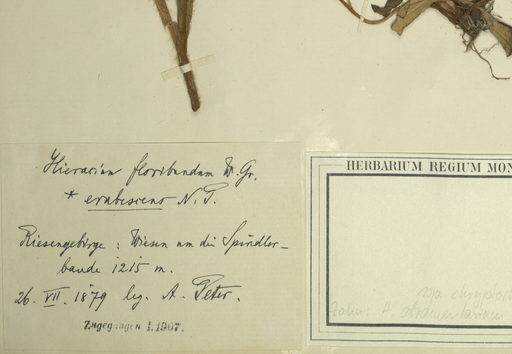 Hieracium floribundum W. Gr.
* erubescens N. P.
Riesengebirge: Wiesen um die Spindler-
baude 1215 m.
26. VII. 1879 leg. A. Peter.
Zugegangen I. 1907.
HERBARIUM REGIUM MON
Zahn: H.